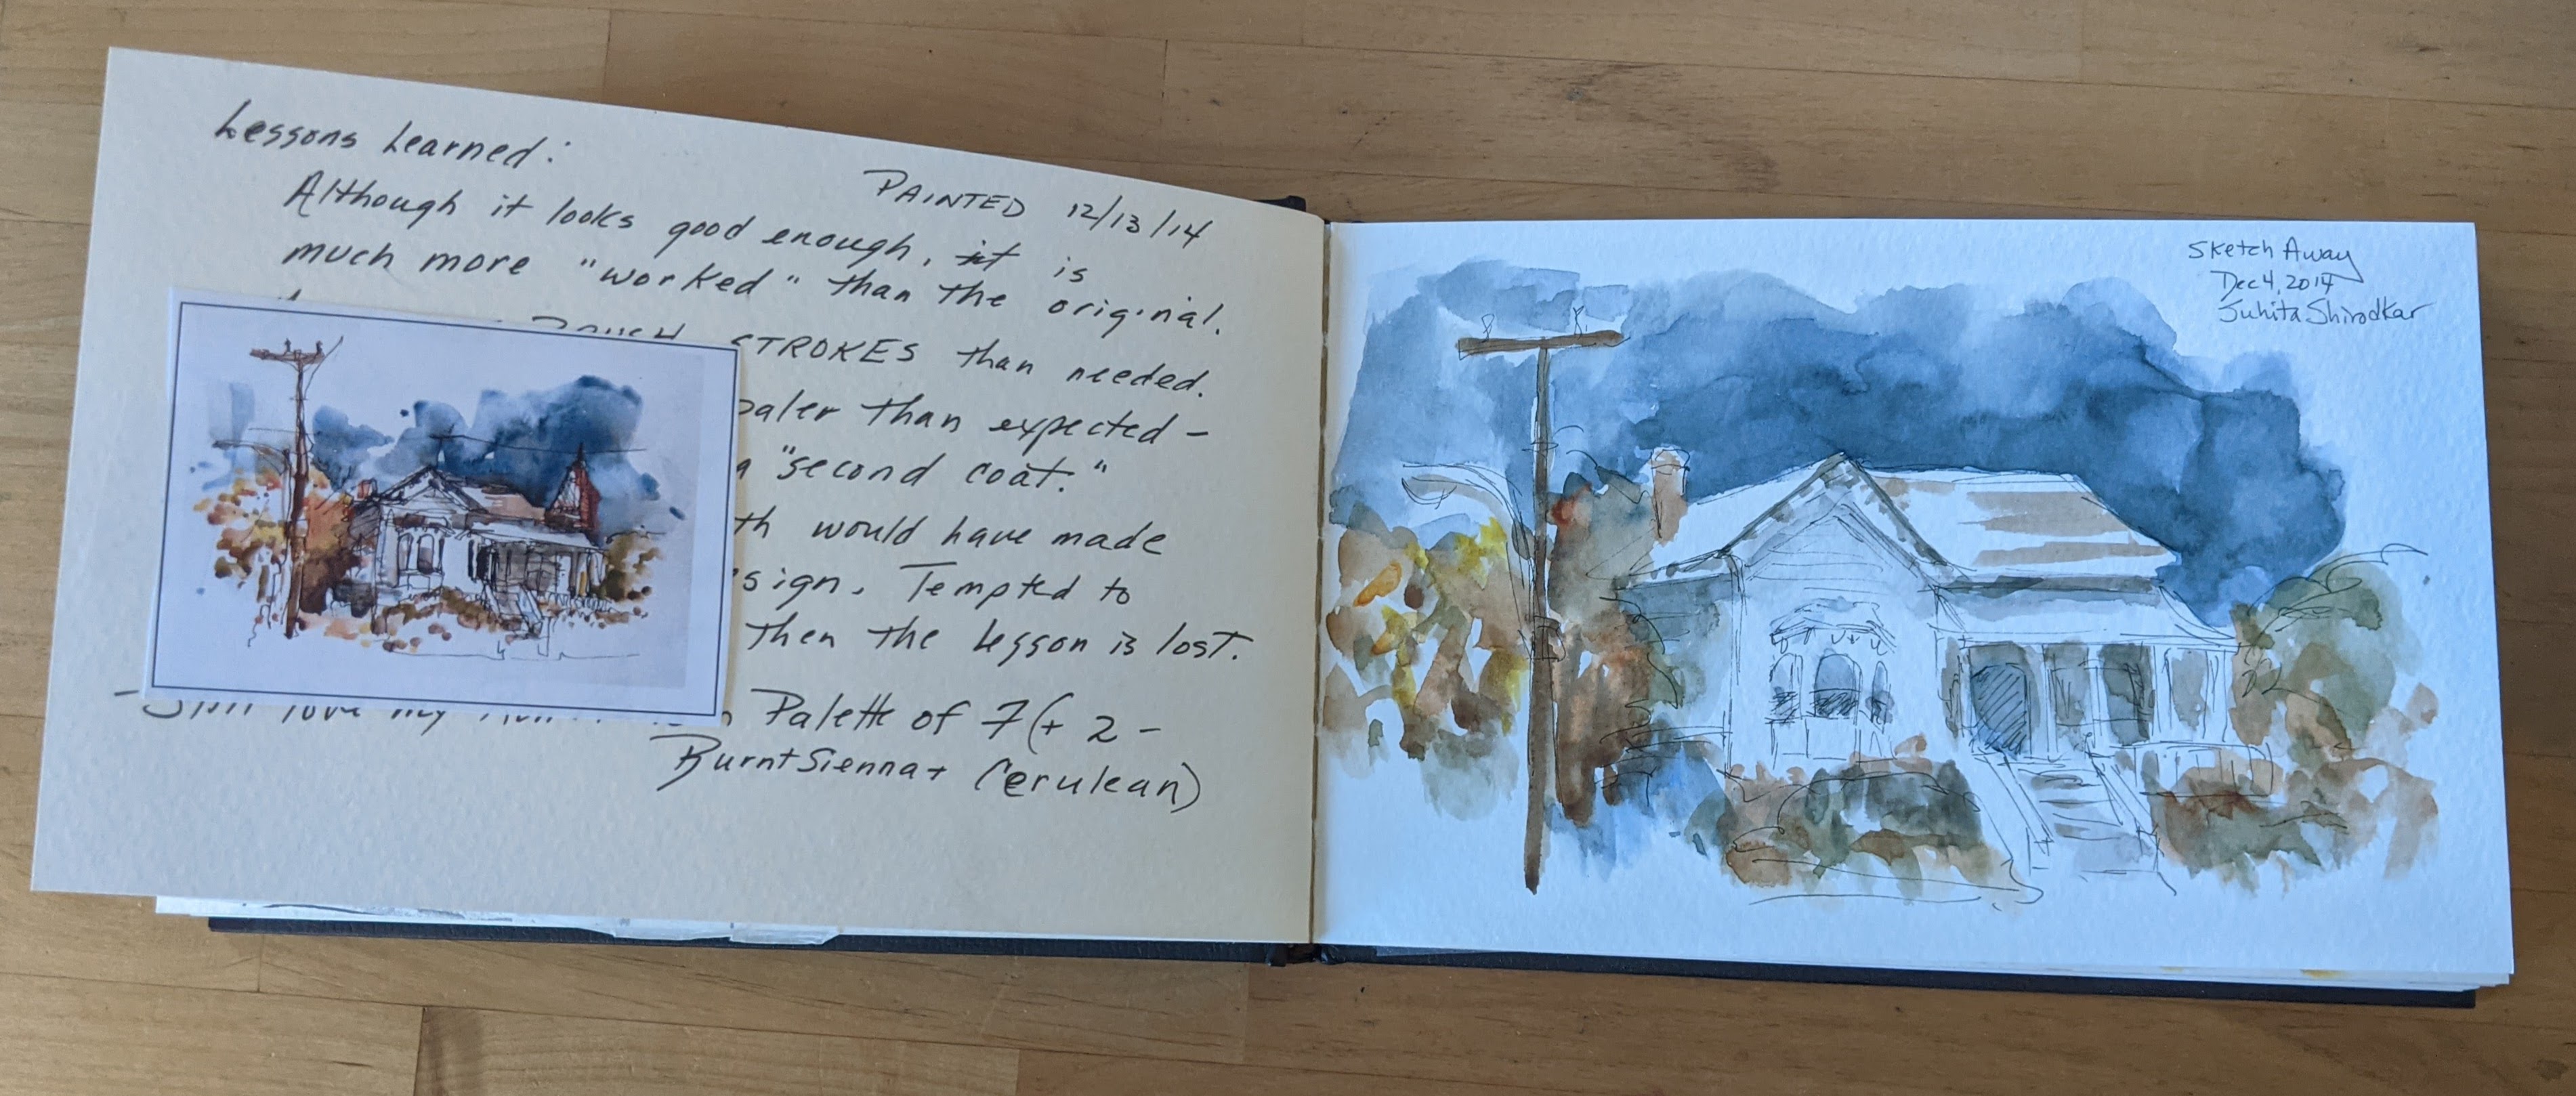 Lessons Learned:
PAINTED 12/13/14
Although it looks good enough, it is
much more "worked" than the original.
STROKES than needed.
paler than expected -
"second coat."
would have made
Tempted to
then the Lesson is lost.
- Still love my Palette of 7 (+ 2 -
Burnt Sienna + Cerulean)
Sketch Away
Dec 4, 2014
Suhita Shirodkar